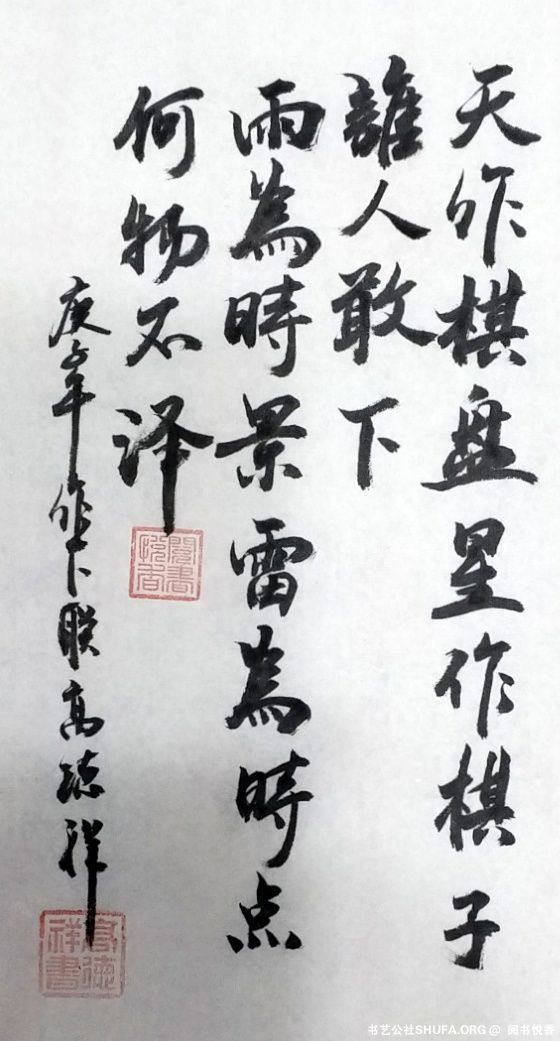 天作棋盘星作棋子
誰人敢下
雨為時景雷為時点
何物不泽
庚子年作下联高德祥
閲書悦香
高德祥書
书艺公社SHUFA.ORG @ 阅书悦香